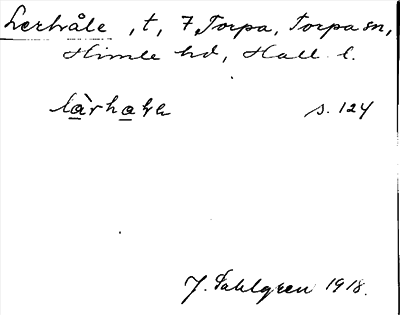 Lerhåle, t, 7 Torpa, Torpa sn,
Himle hd, Hall. l.
s. 124
J. Sahlgren 1918.